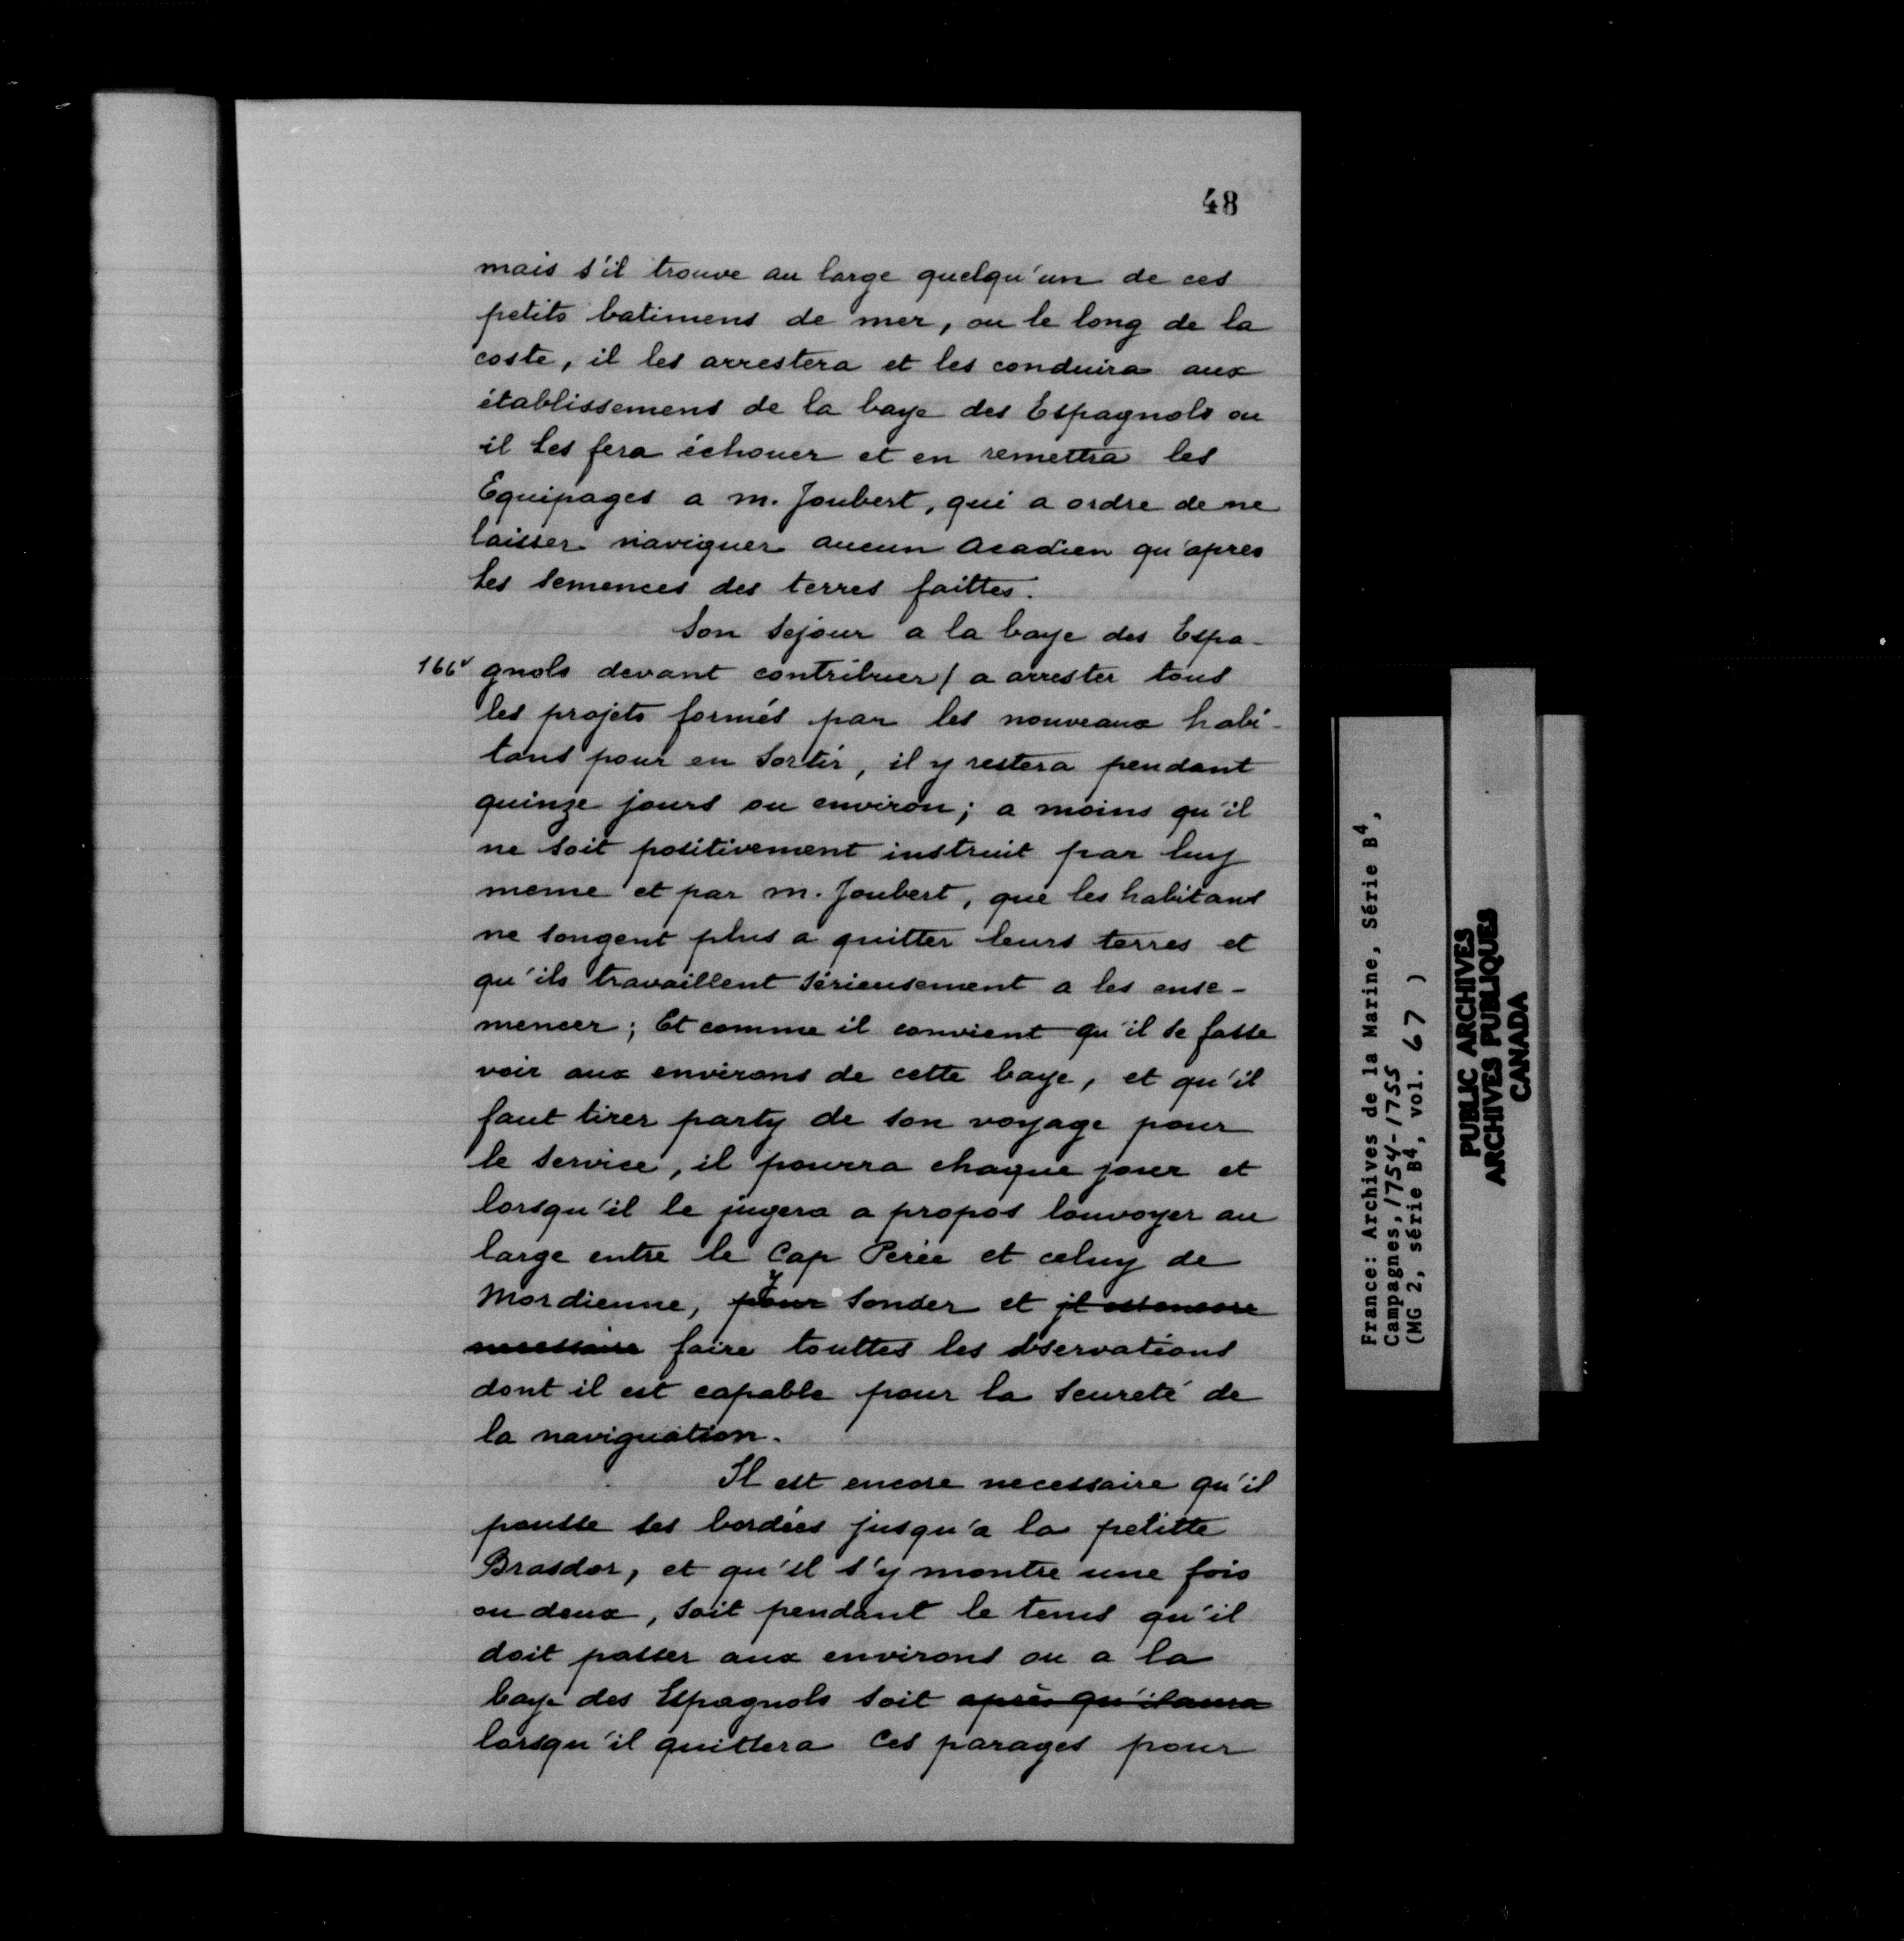 48
mais s'il trouve au large quelqu'un de ces
petits batimens de mer, ou le long de la
coste, il les arrestera et les conduira aux
établissemens de la baye des Espagnols ou
il les fera échouer et en remettra les
Equipages a m. Joubert, qui a ordre de ne
laisser naviguer aucun acadien qu'apres
les semences des terres faittes.
Son sejour a la baye des Espa-
166v gnols devant contribuer / a arrester tous
les projets formés par les nouveaux habi-
tans pour en sortir, il y restera pendant
quinze jours ou environ; a moins qu'il
ne soit positivement instruit par luy
meme et par m. Joubert, que les habitans
ne songent plus a quitter leurs terres et
qu'ils travaillent sérieusement a les ense-
mencer; Et comme il convient qu'il se fasse
voir aux environs de cette baye, et qu'il
faut tirer party de son voyage pour
le service, il pourra chaque jour et
lorsqu'il le jugera a propos louvoyer au
large entre le Cap Perée et celuy de
Mordienne, pour y sonder et il est encore
necessaire faire touttes les observations
dont il est capable pour la seureté de
la naviguation.
Il est encore necessaire qu'il
pousse ses bordées jusqu'a la petitte
Brasdor, et qu'il s'y montre une fois
ou deux, soit pendant le tems qu'il
doit passer aux environs ou a la
baye des Espagnols soit après qu'il aura
lorsqu'il quittera ces parages pour
France: Archives de la Marine, Série B4,
Campagnes, 1754-1755
(MG 2, série B4, vol. 67 )
PUBLIC ARCHIVES
ARCHIVES PUBLIQUES
CANADA